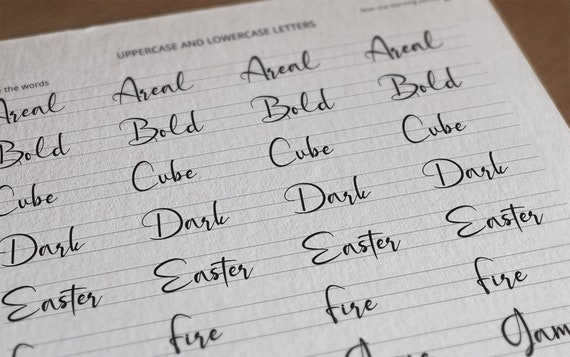 UPPERCASE AND LOWERCASE LETTERS
the words
Areal Areal Areal Areal
Bold Bold Bold Bold
Cube Cube Cube Cube
Dark Dark Dark Dark
Easter Easter Easter Easter
fire fire fire